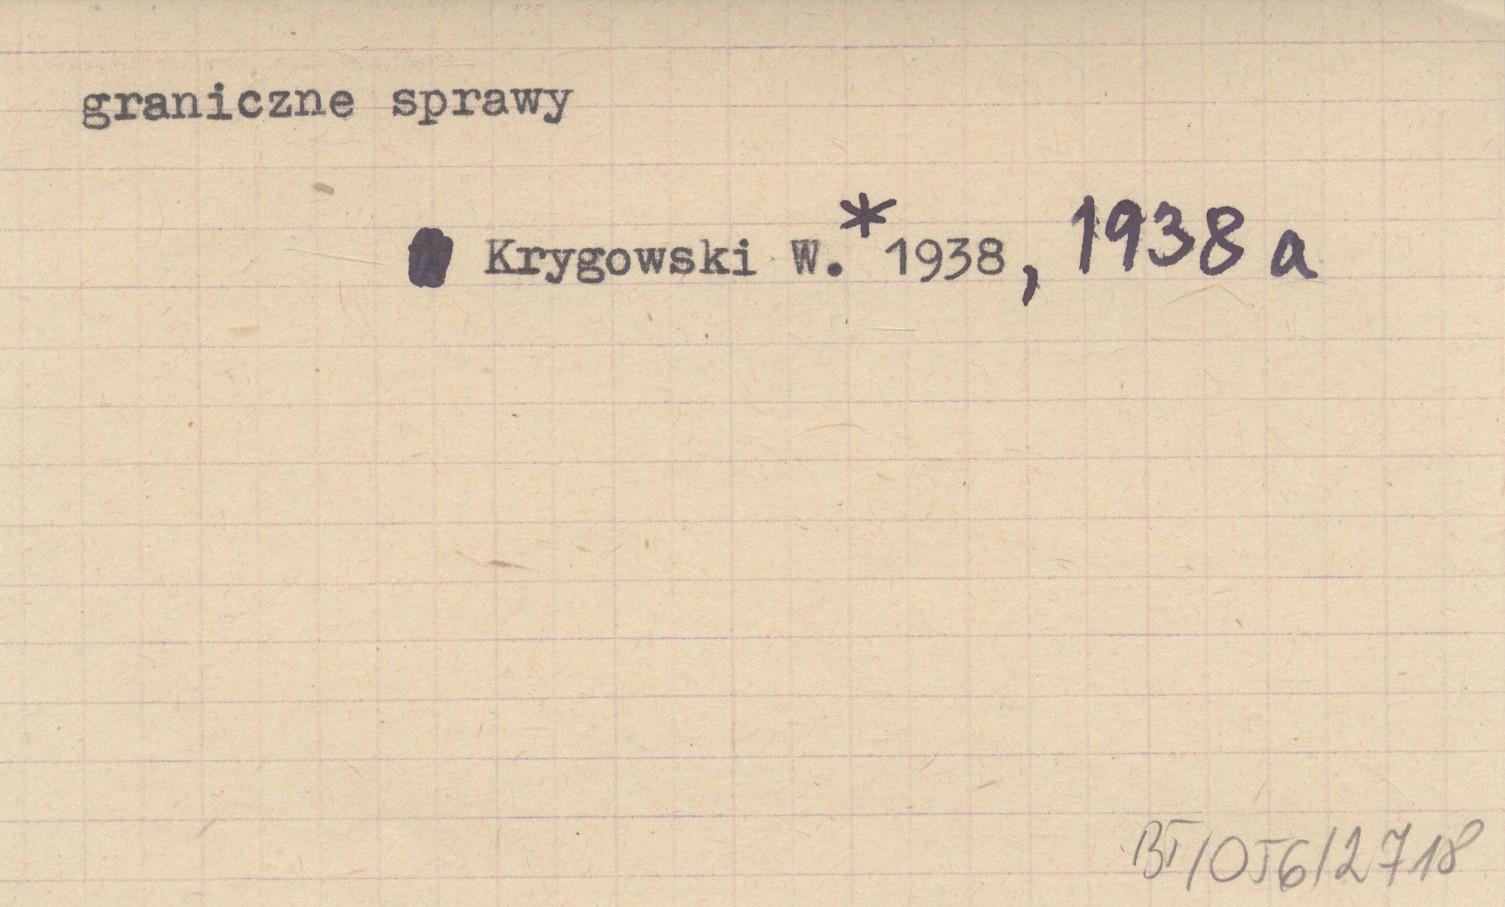 graniczne sprawy
Krygowski W.* 1938, 1938 a
BT/OJ6/2718